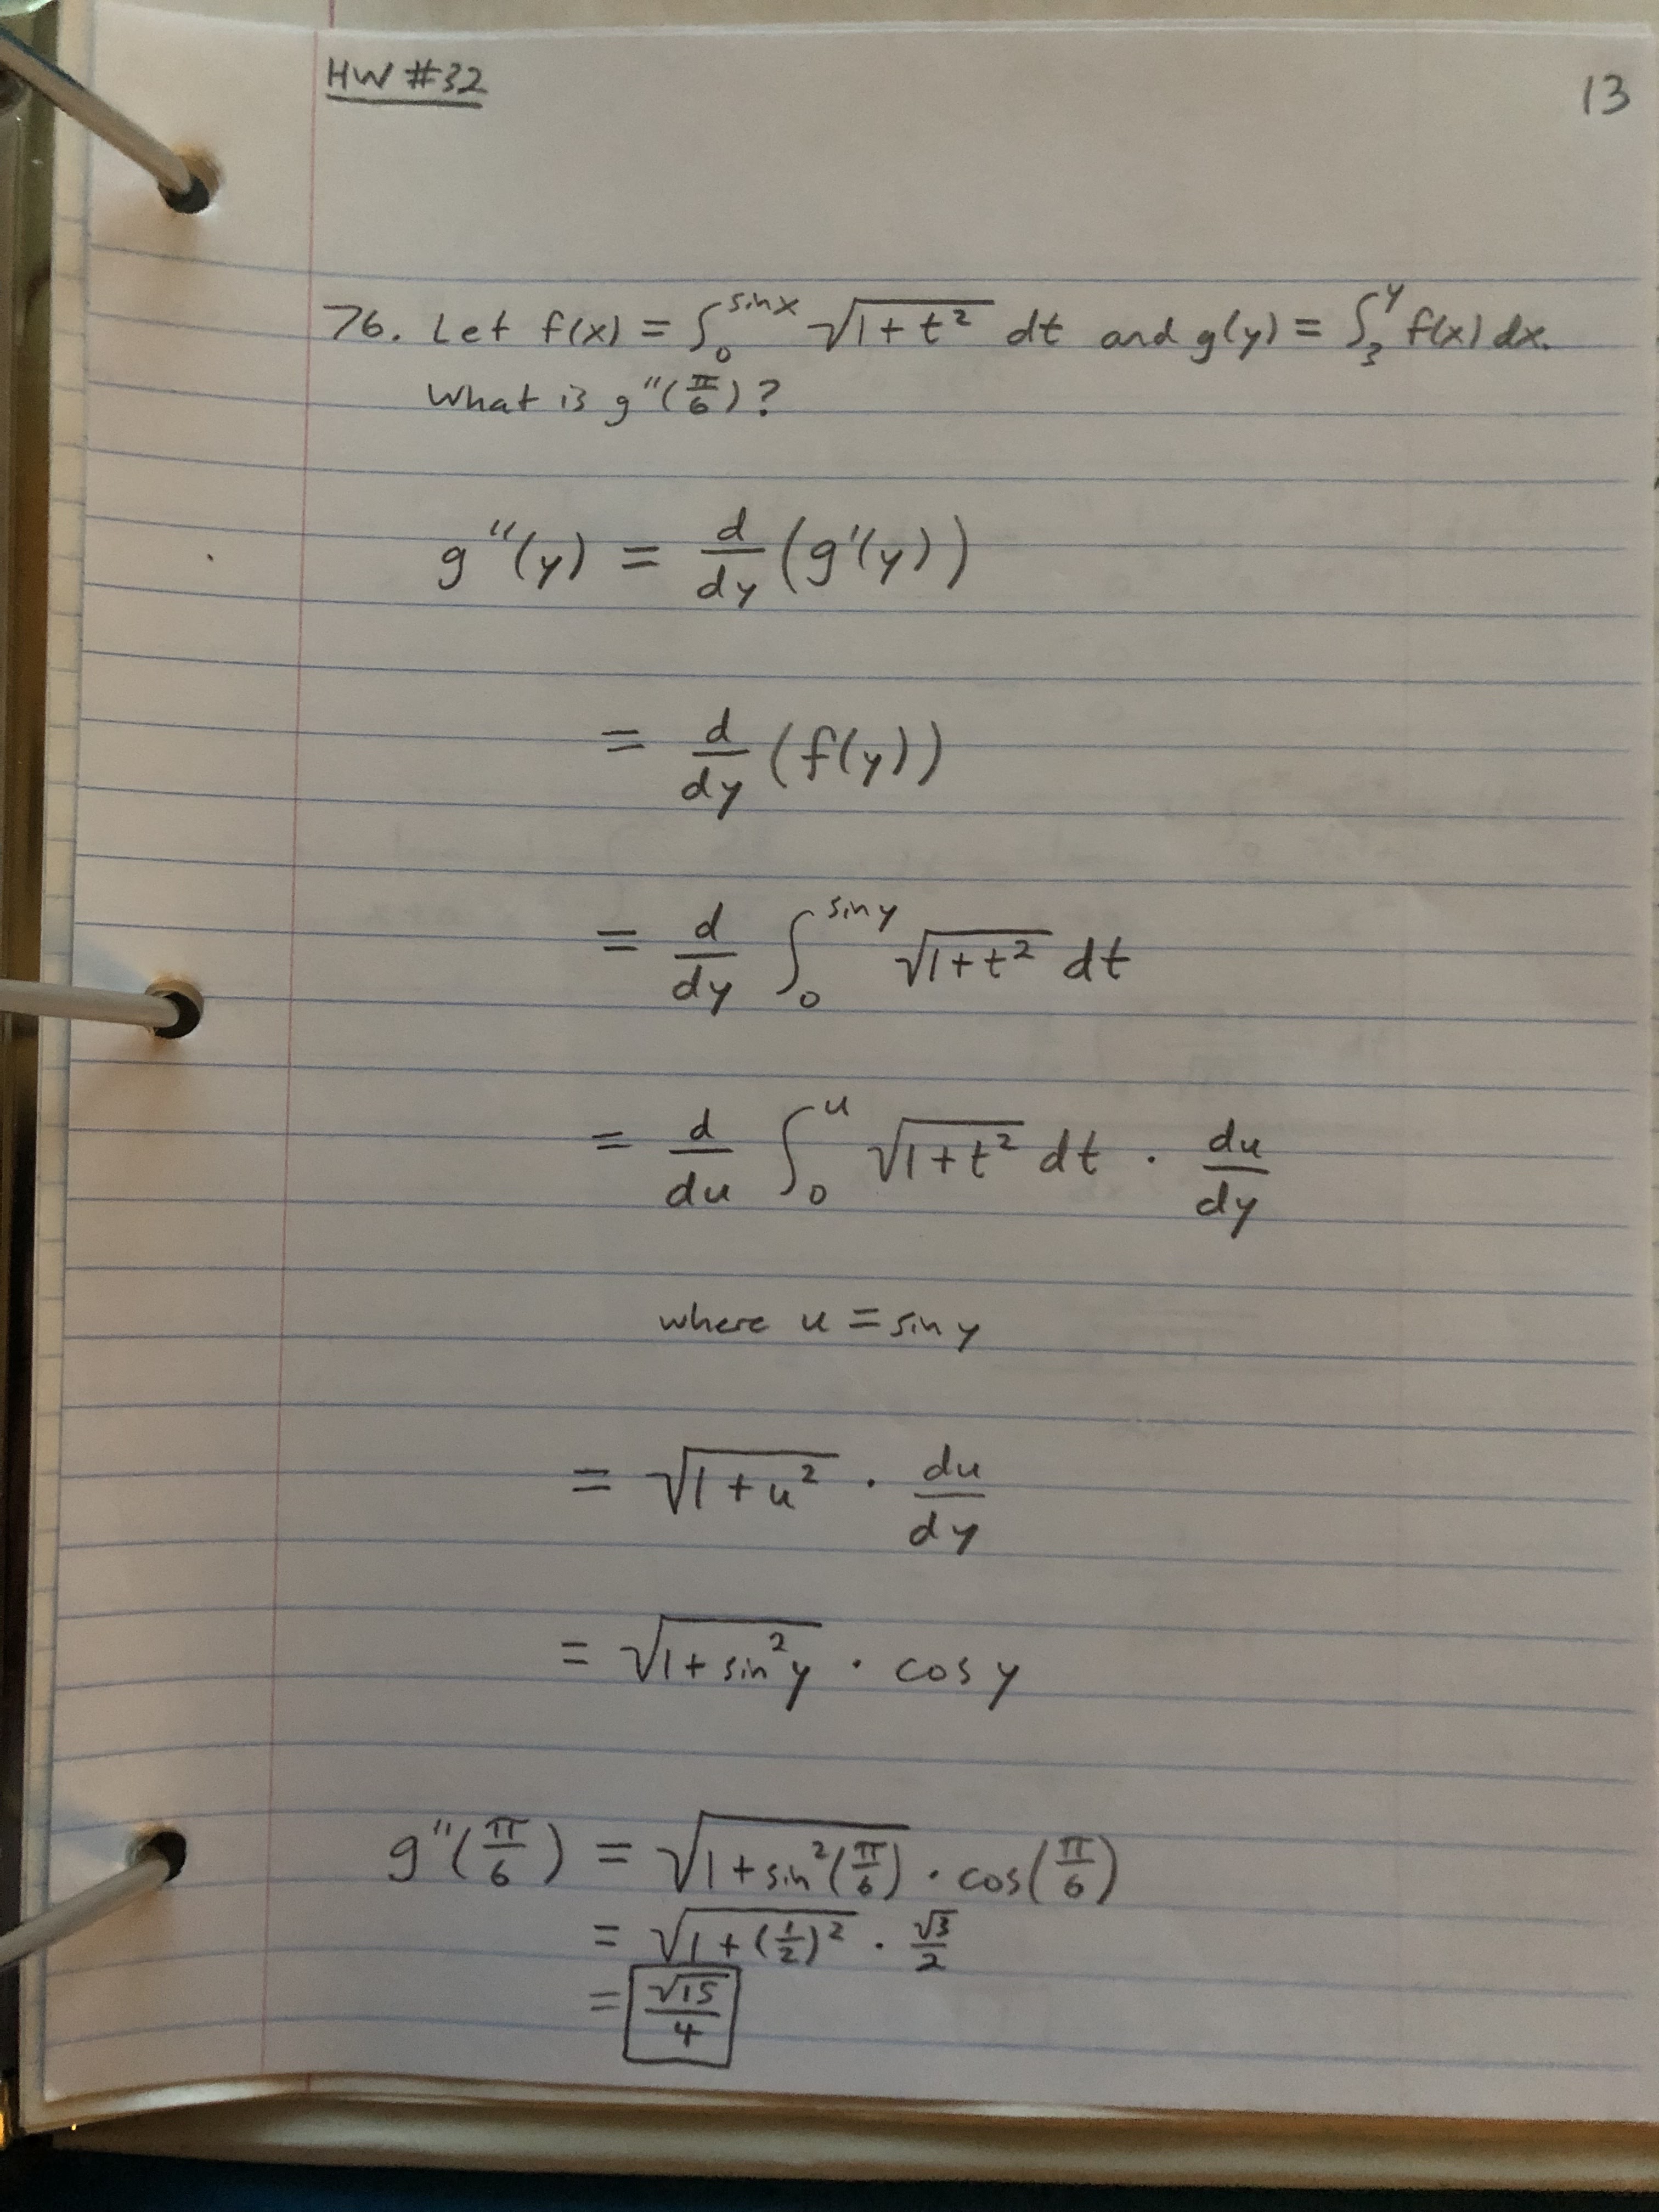 HW #32
13
76. Let f(x) = ∫₀^(sinx) √(1+t²) dt and g(y) = ∫₃^y f(x) dx.
What is g″(π/6)?
g″(y) = d/dy (g′(y))
= d/dy (f(y))
= d/dy ∫₀^(siny) √(1+t²) dt
= d/du ∫₀^u √(1+t²) dt · du/dy
where u = sin y
= √(1+u²) · du/dy
= √(1+sin²y) · cos y
g″(π/6) = √(1+sin²(π/6)) · cos(π/6)
= √(1+(1/2)²) · √3/2
= √15/4